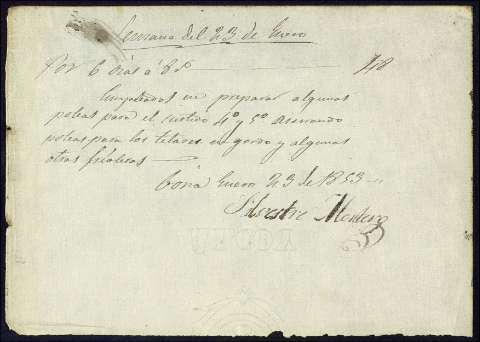 Semana del 23 de Enero
Por 6 dias á 8 rs 48
Empleados en preparar algunas
poleas para el surtido 4º y 5º
poleas para los telares en gordo y algunas
otras frioleras
Coria Enero 23 de 1853
Silvestre Montero